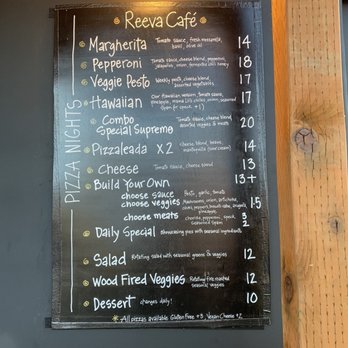 Reeva Café
PIZZA NIGHTS
Margherita Tomato sauce, fresh mozzarella, basil, olive oil 14
Pepperoni Tomato sauce, cheese blend, pepperoni, jalapeños, onion, hot honey 18
Veggie Pesto Weekly pesto, cheese blend, assorted vegetables 17
Hawaiian Our Hawaiian version, tomato sauce, pineapple, mama lil's chilies, onion, seasoned 17
Combo
Special Supreme Tomato sauce, cheese blend, assorted veggies & meats 20
Pizzaleada X2 cheese blend, beans, mantequilla (sour cream) 14
Cheese Tomato sauce, cheese blend 13
Build Your Own 13+
choose sauce Pesto, garlic, tomato
choose veggies 1.5
choose meats 3
2
Daily Special Showcasing pies with seasonal ingredients
Salad Rotating salad with seasonal greens & veggies 12
Wood Fired Veggies Rotating fire roasted seasonal veggies 12
Dessert changes daily! 10
*All pizzas available Gluten Free +3, Vegan Cheese +2